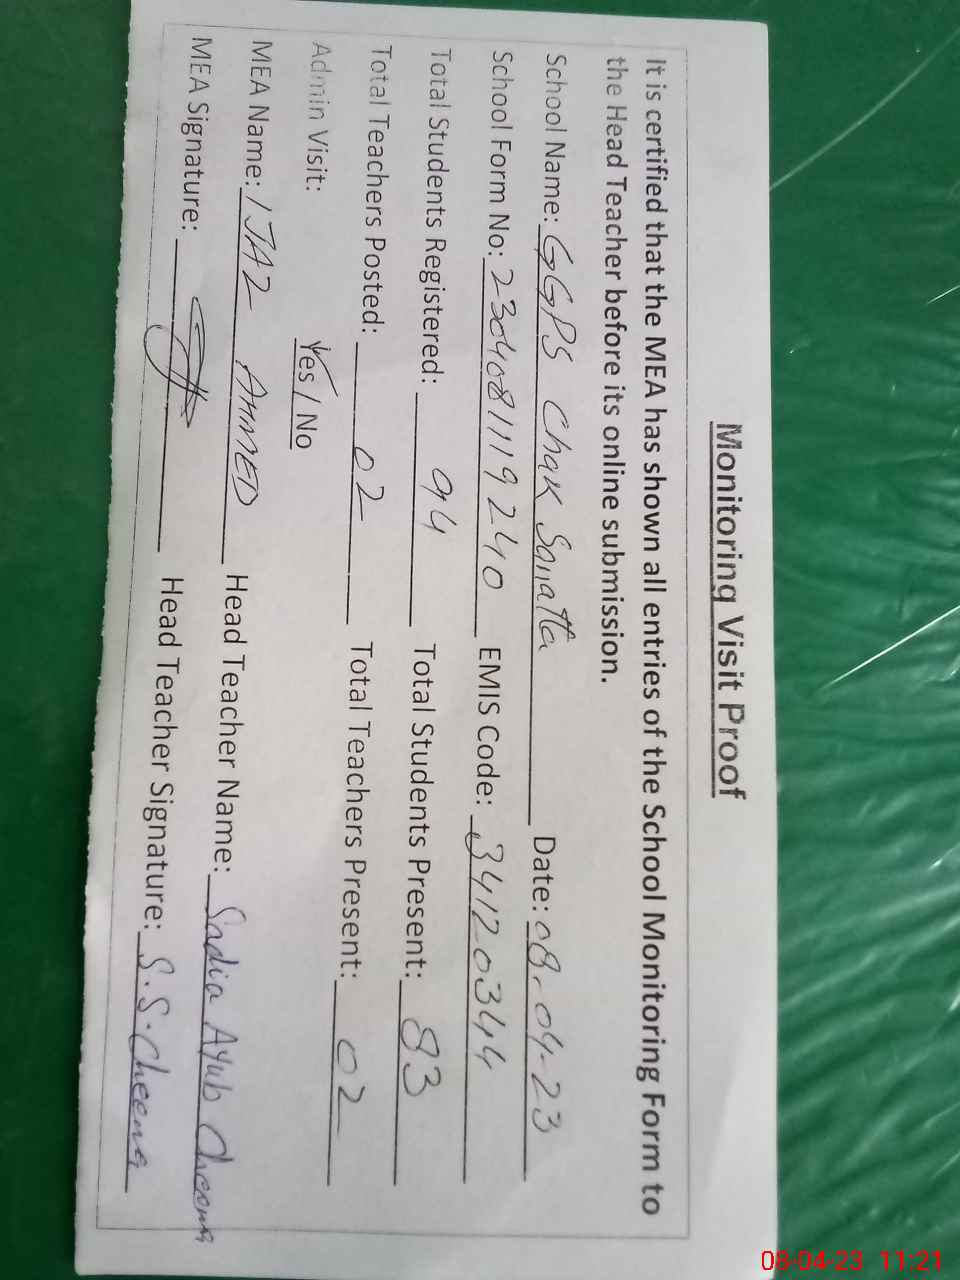 Monitoring Visit Proof
It is certified that the MEA has shown all entries of the School Monitoring Form to
the Head Teacher before its online submission.
School Name: GGPS Chak Sanatta Date: 08-04-23
School Form No: 23040811119240 EMIS Code: 34120344
Total Students Registered: 94 Total Students Present: 83
Total Teachers Posted: 02 Total Teachers Present: 02
Admin Visit: Yes / No
MEA Name: IJAZ AHMED Head Teacher Name: Sadia Ayub Cheema
MEA Signature: Head Teacher Signature: S.S.Cheema
08-04-23 11:21